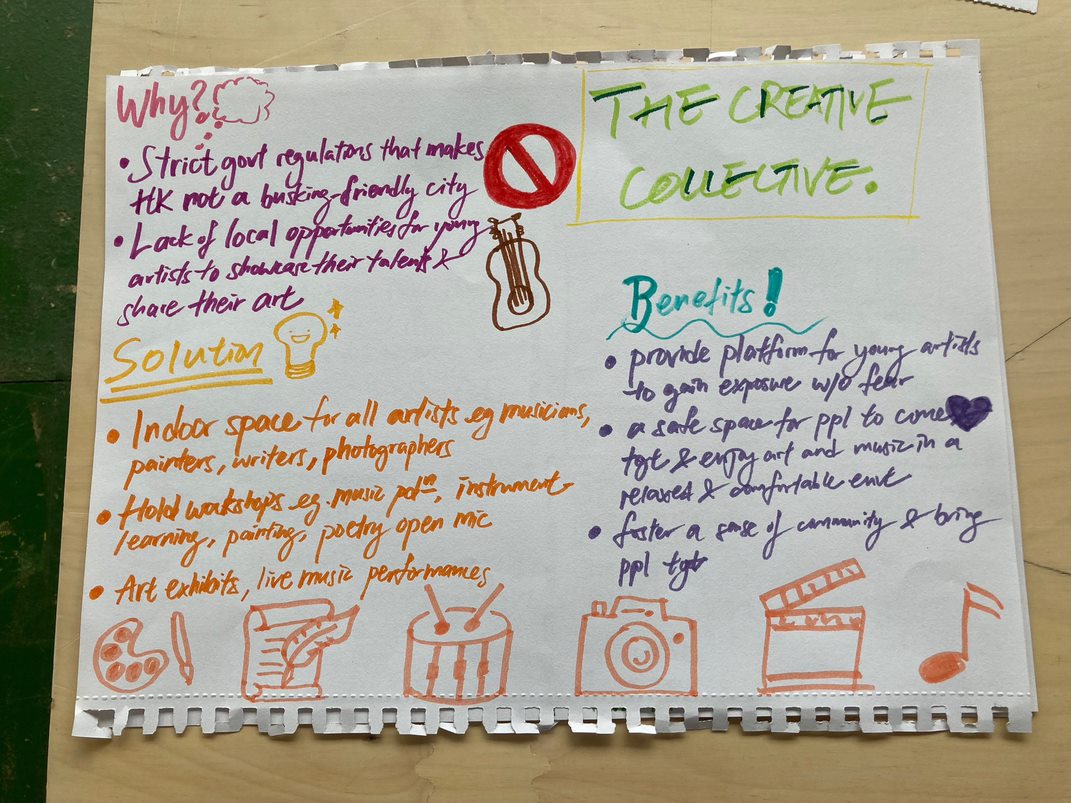 THE CREATIVE
COLLECTIVE.
Why?
• Strict govt regulations that makes
HK not a busking-friendly city
• Lack of local opportunities for young
artists to showcase their talents &
share their art
Solution
• Indoor space for all artists eg musicians,
painters, writers, photographers
• Hold workshops eg. music pdtn, instrument
learning, painting, poetry open mic
• Art exhibits, live music performances
Benefits!
• provide platform for young artists
to gain exposure w/o fear
• a safe space for ppl to come
tgt & enjoy art and music in a
relaxed & comfortable envt
• foster a sense of community & bring
ppl tgt